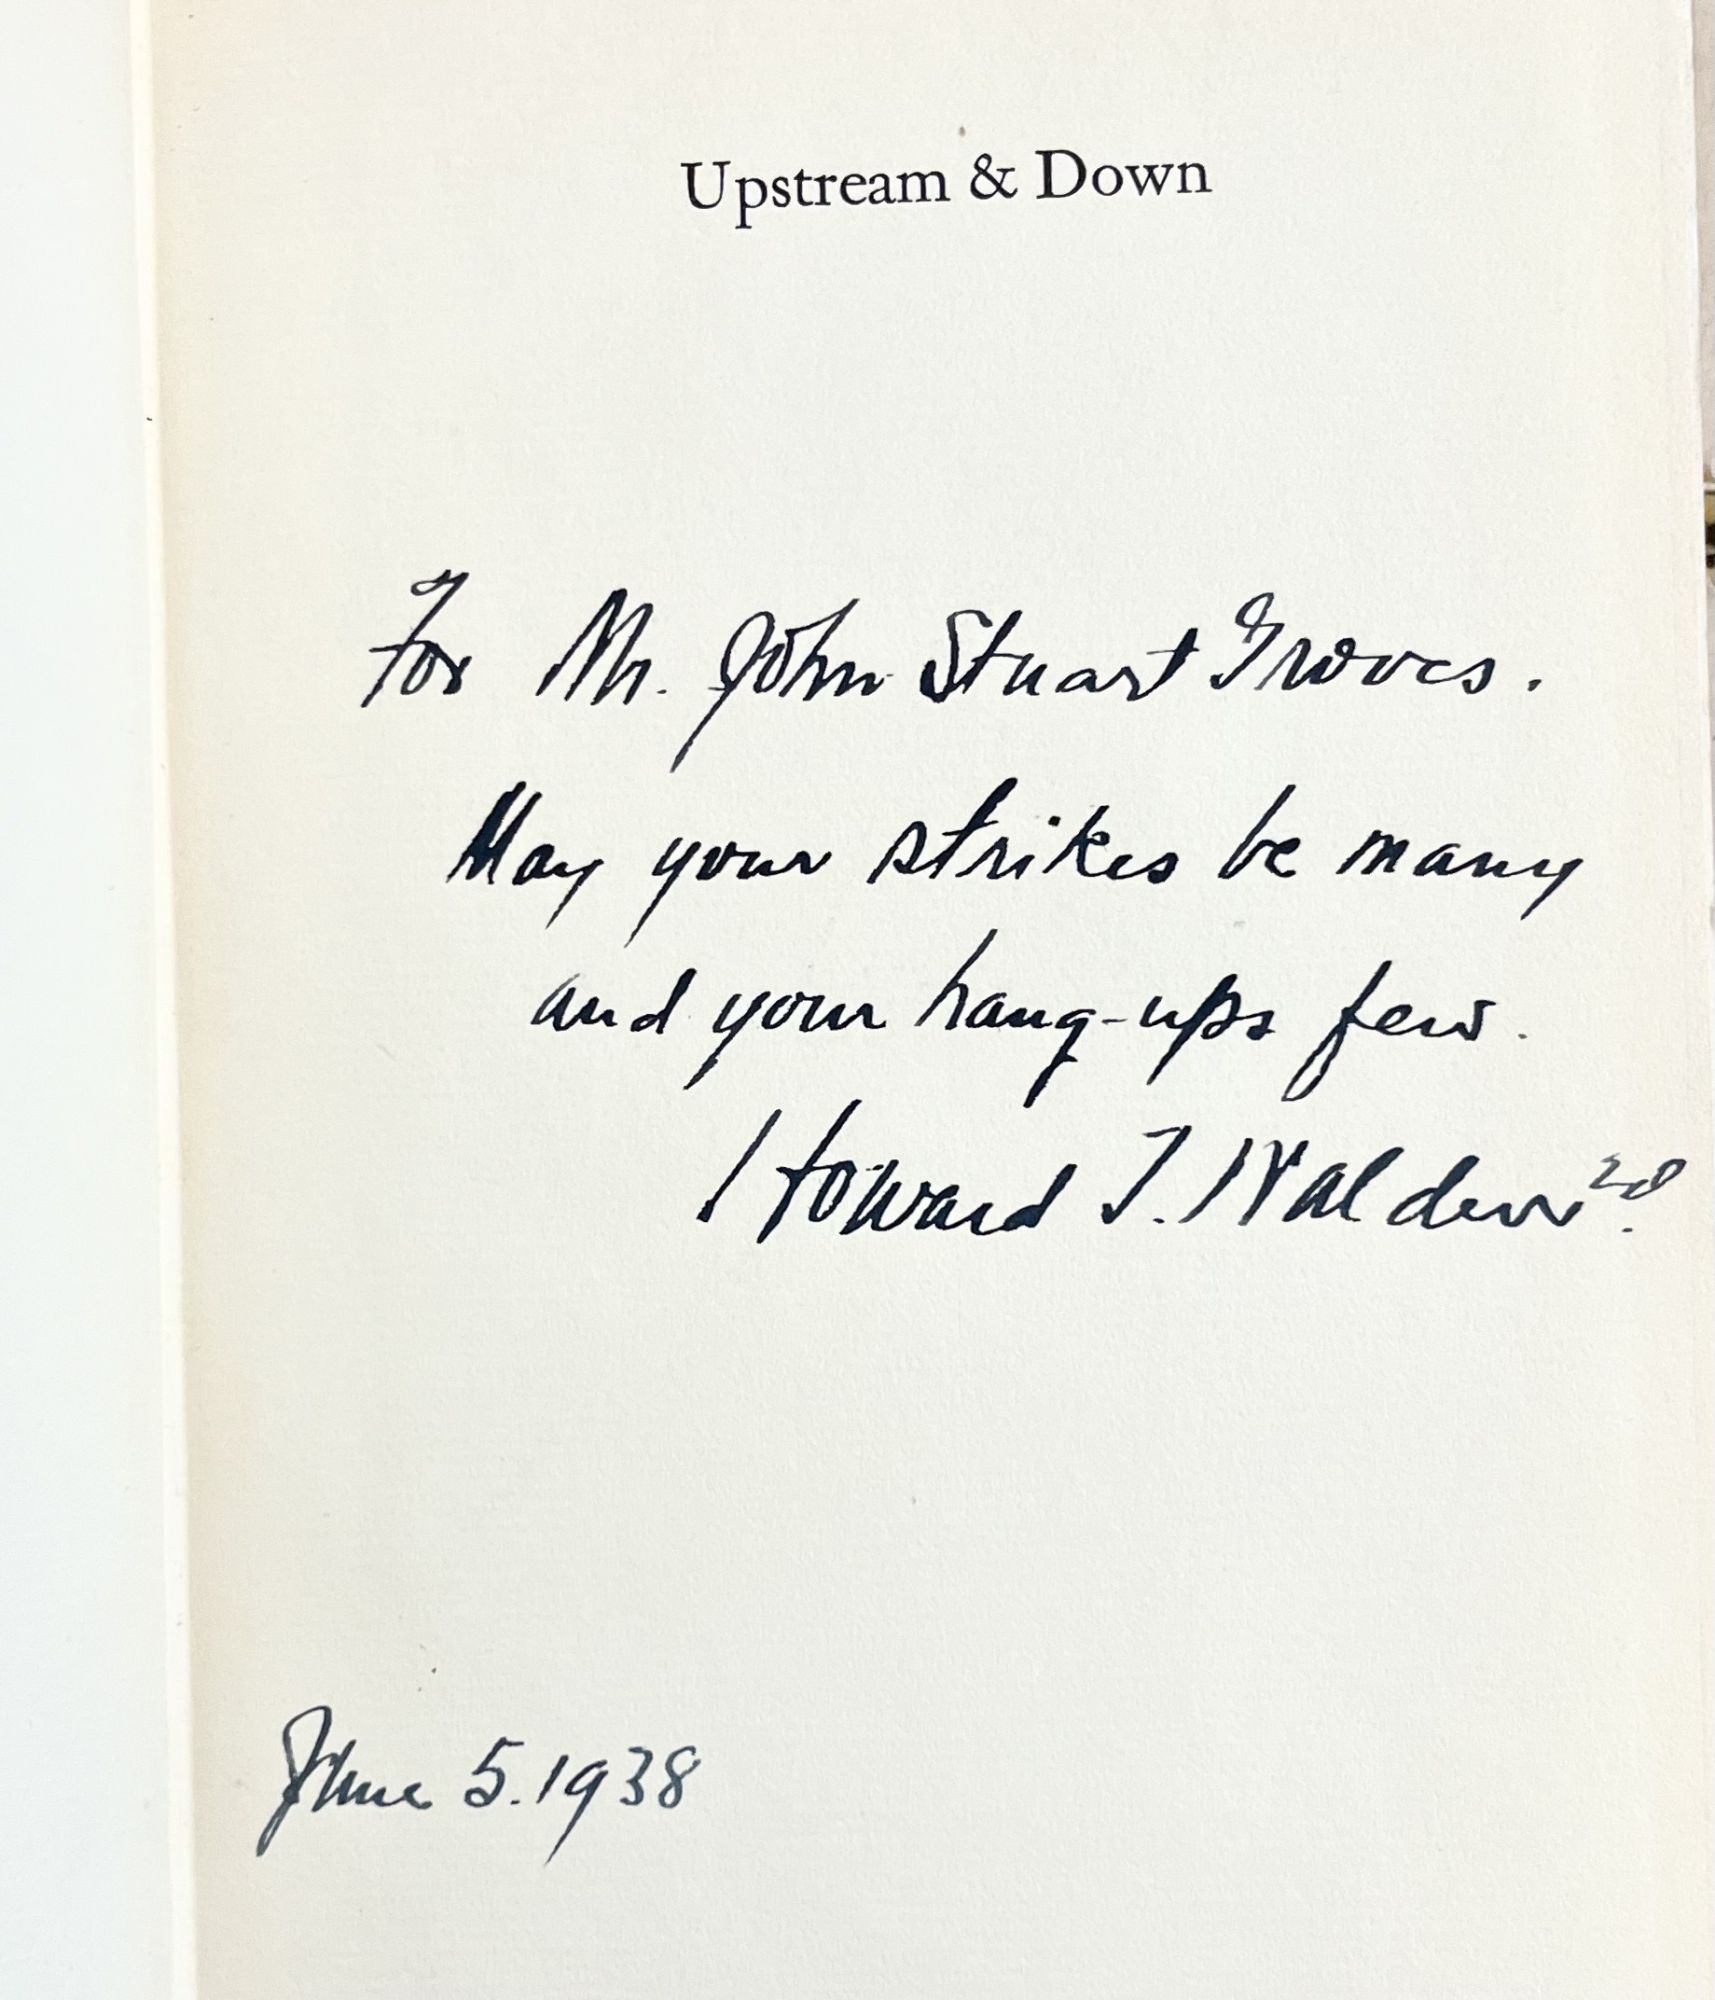 Upstream & Down
For Mr. John Stuart Groves.
May your strikes be many
and your hang-ups few.
Howard T. Walden 2d.
June 5. 1938